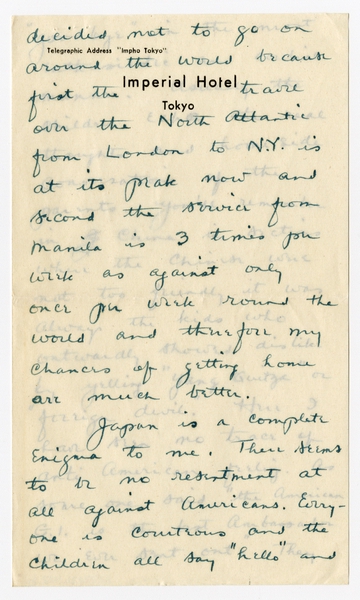 decided not to go on
Telegraphic Address "Impho Tokyo"
around the world because
Imperial Hotel
first the travel
Tokyo
over the North Atlantic
from London to N.Y. is
at its peak now and
second the service from
Manila is 3 times per
week as against only
once per week round the
world and therefore my
chances of getting home
are much better.
Japan is a complete
enigma to me. There seems
to be no resentment at
all against Americans. Every-
one is courteous and the
children all say "hello" and